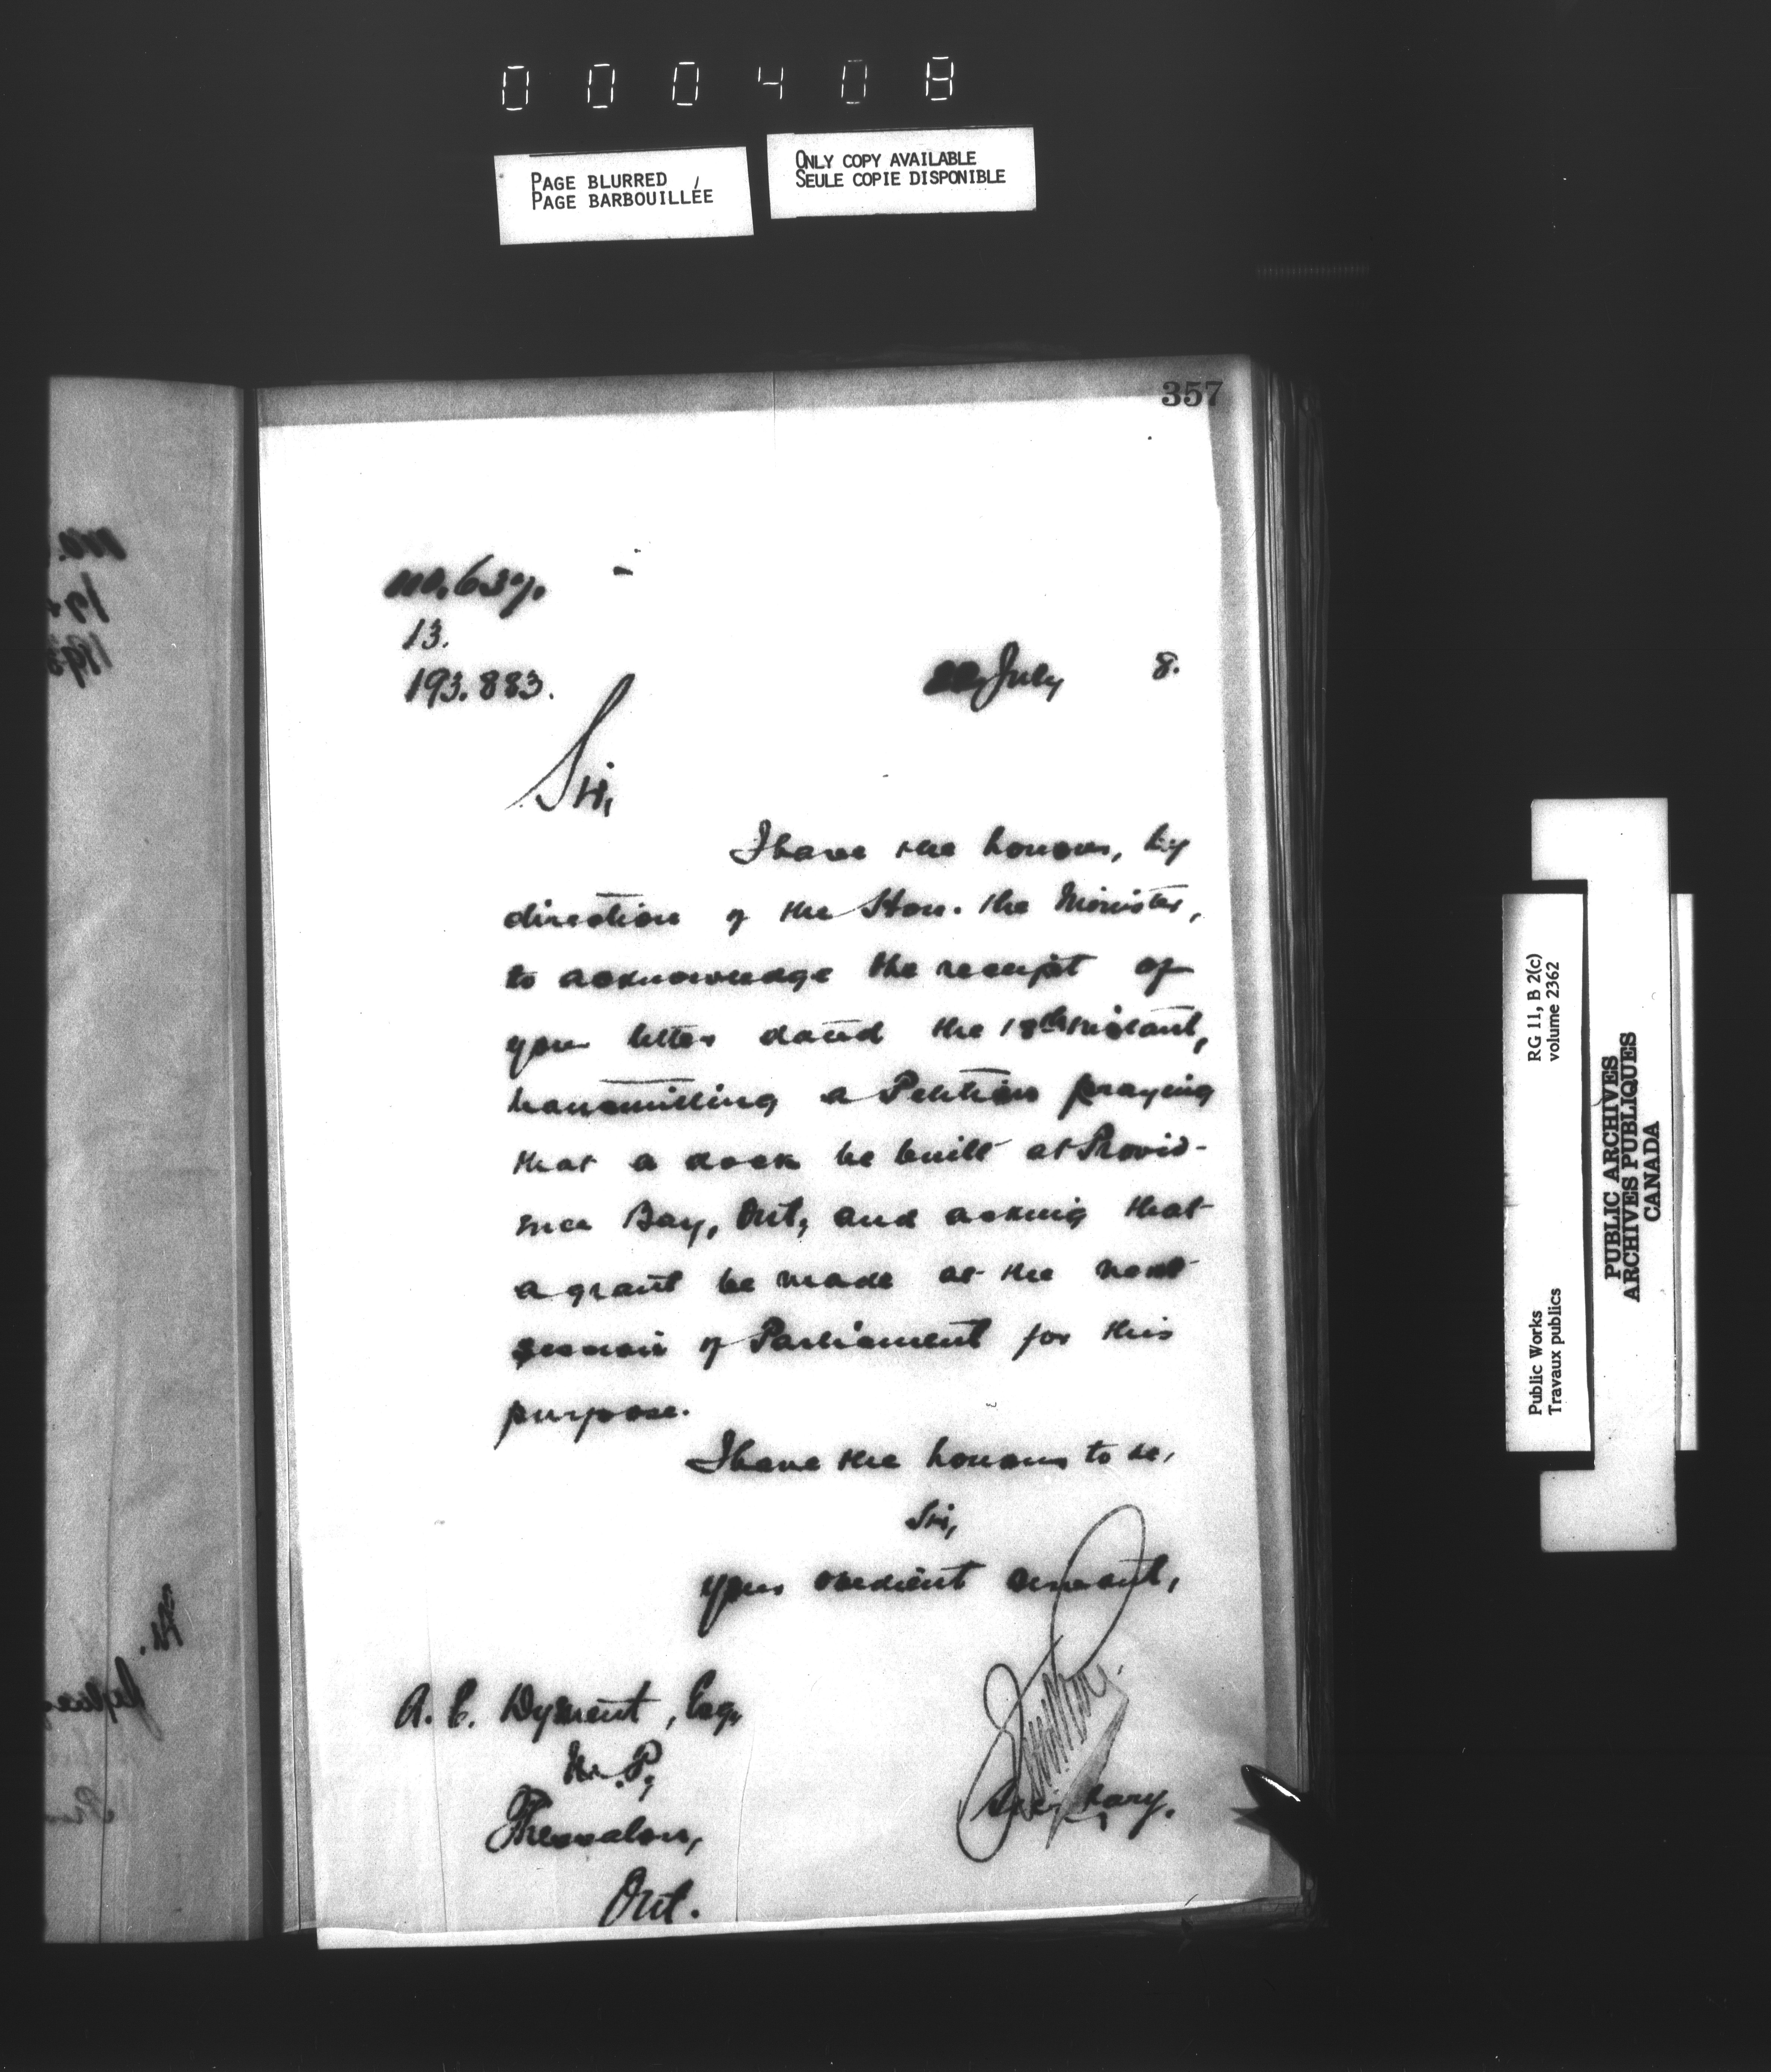 000408
PAGE BLURRED
PAGE BARBOUILLÉE
ONLY COPY AVAILABLE
SEULE COPIE DISPONIBLE
357
No. 637.
13.
193.883.
22, July 8.
Sir,
I have the honour, by
direction of the Hon. the Minister,
to acknowledge the receipt of
your letter dated the 18th instant,
transmitting a Petition praying
that a dock be built at Provid-
ence Bay, Ont, and asking that
a grant be made at the next
session of Parliament for this
purpose.
I have the honour to be,
Sir,
your obedient servant,
Secretary.
A. E. Dyment, Esq,
M.P,
Thessalon,
Ont.
RG 11, B 2(c)
volume 2362
Public Works
Travaux publics
PUBLIC ARCHIVES
ARCHIVES PUBLIQUES
CANADA